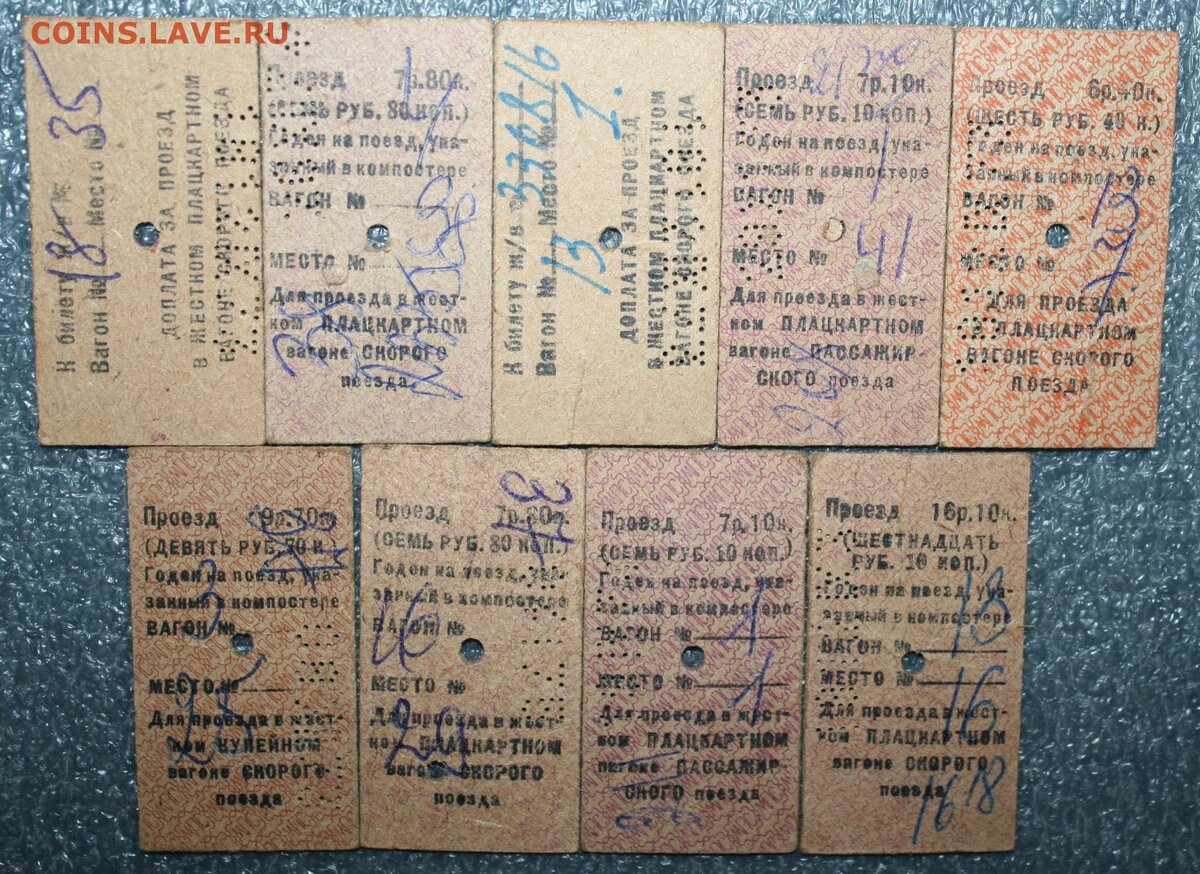 COINS.LAVE.RU
К билету №
Вагон № 18 Место № 35
ДОПЛАТА ЗА ПРОЕЗД
В ЖЕСТНОМ ПЛАЦКАРТНОМ
ВАГОНЕ СКОРОГО ПОЕЗДА
Проезд 7р.80к.
(СЕМЬ РУБ. 80 КОП.)
Годен на поезд, ука-
занный в компостере
ВАГОН №
МЕСТО №
Для проезда в жест-
ком ПЛАЦКАРТНОМ
вагоне СКОРОГО
поезда
К билету м/в № 338816
Вагон № 13 Место № 1.
ДОПЛАТА ЗА ПРОЕЗД
В ЖЕСТНОМ ПЛАЦКАРТНОМ
ВАГОНЕ СКОРОГО ПОЕЗДА
Проезд 7р.10к.
(СЕМЬ РУБ. 10 КОП.)
Годен на поезд, ука-
занный в компостере
ВАГОН № 1
МЕСТО № 41
Для проезда в жест-
ком ПЛАЦКАРТНОМ
вагоне ПАССАЖИР-
СКОГО поезда
Проезд 6р.40к.
(ШЕСТЬ РУБ. 40 К.)
Годен на поезд, ука-
занный в компостере
ВАГОН № 13
МЕСТО № 7
ДЛЯ ПРОЕЗДА
В ПЛАЦКАРТНОМ
ВАГОНЕ СКОРОГО
ПОЕЗДА
Проезд 9р.70к.
(ДЕВЯТЬ РУБ. 70 К.)
Годен на поезд, ука-
занный в компостере
ВАГОН № 3
МЕСТО № 25
Для проезда в жест-
ком КУПЕЙНОМ
вагоне СКОРОГО
поезда
Проезд 7р.80к.
(СЕМЬ РУБ. 80 КОП.)
Годен на поезд, ука-
занный в компостере
ВАГОН № 16
МЕСТО № 29
Для проезда в жест-
ком ПЛАЦКАРТНОМ
вагоне СКОРОГО
поезда
Проезд 7р.10к.
(СЕМЬ РУБ. 10 КОП.)
Годен на поезд, ука-
занный в компостере
ВАГОН № 1
МЕСТО № 1
Для проезда в жест-
ком ПЛАЦКАРТНОМ
вагоне ПАССАЖИР-
СКОГО поезда
Проезд 16р.10к.
(ШЕСТНАДЦАТЬ
РУБ. 10 КОП.)
Годен на поезд, ука-
занный в компостере
ВАГОН № 13
МЕСТО № 16
Для проезда в жест-
ком ПЛАЦКАРТНОМ
вагоне СКОРОГО
поезда
1618